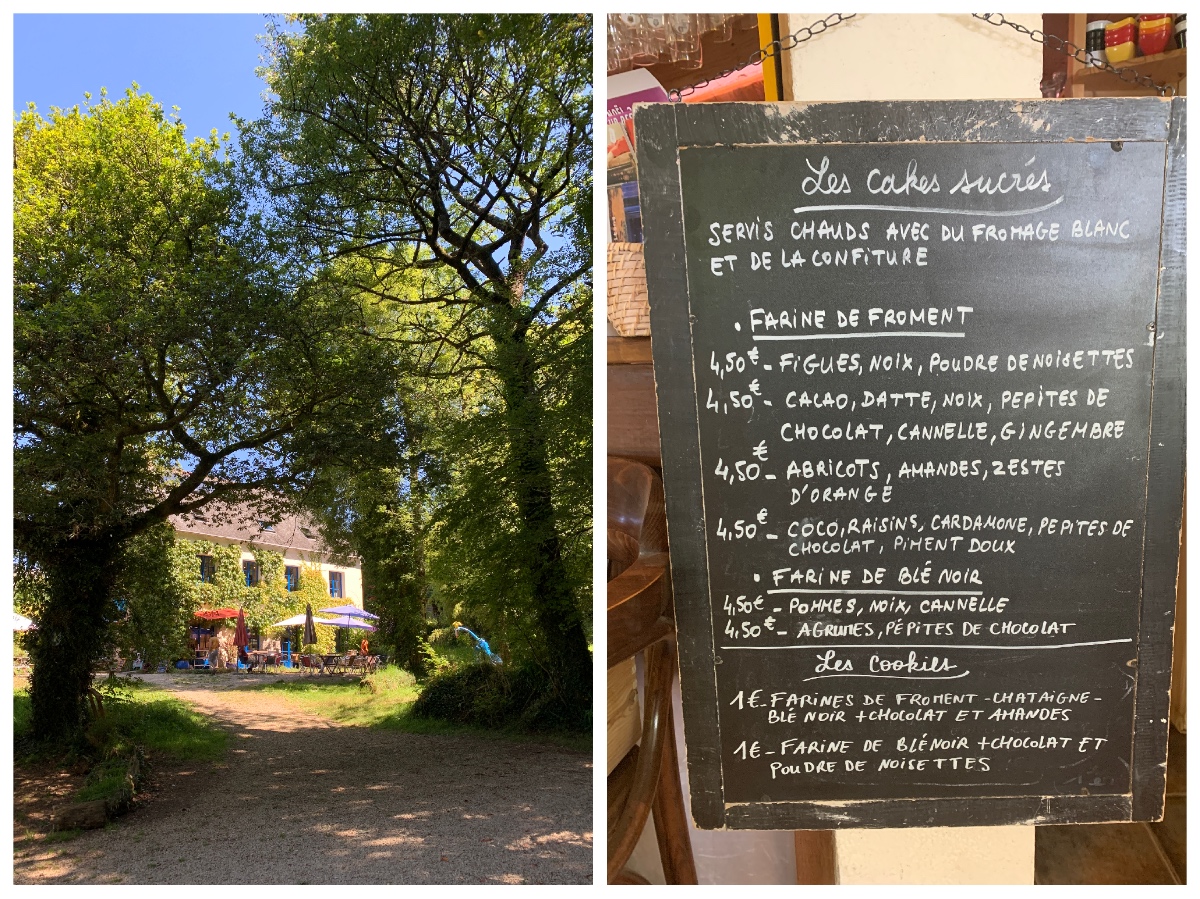 Les cakes sucrés
SERVIS CHAUDS AVEC DU FROMAGE BLANC
ET DE LA CONFITURE
• FARINE DE FROMENT
4,50€ - FIGUES, NOIX, POUDRE DE NOISETTES
4,50€ - CACAO, DATTE, NOIX, PEPITES DE
CHOCOLAT, CANNELLE, GINGEMBRE
4,50€ - ABRICOTS, AMANDES, ZESTES
D'ORANGE
4,50€ - COCO, RAISINS, CARDAMONE, PEPITES DE
CHOCOLAT, PIMENT DOUX
• FARINE DE BLÉ NOIR
4,50€ - POMMES, NOIX, CANNELLE
4,50€ - AGRUMES, PÉPITES DE CHOCOLAT
Les Cookies
1€ - FARINES DE FROMENT - CHATAIGNE -
BLÉ NOIR + CHOCOLAT ET AMANDES
1€ - FARINE DE BLÉ NOIR + CHOCOLAT ET
POUDRE DE NOISETTES